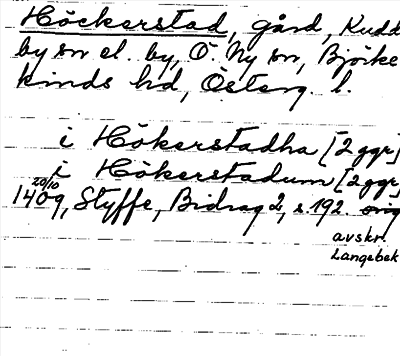 Höckerstad, gård, Kudd
by sn el. by, Ö Ny sn, Björke
kinds hd, Österg. l.
i Hökerstadha [2 ggr]
i Hökerstadum [2 ggr]
20/10
1409, Styffe, Bidrag 2, s. 192. orig
avskr.
Langebek